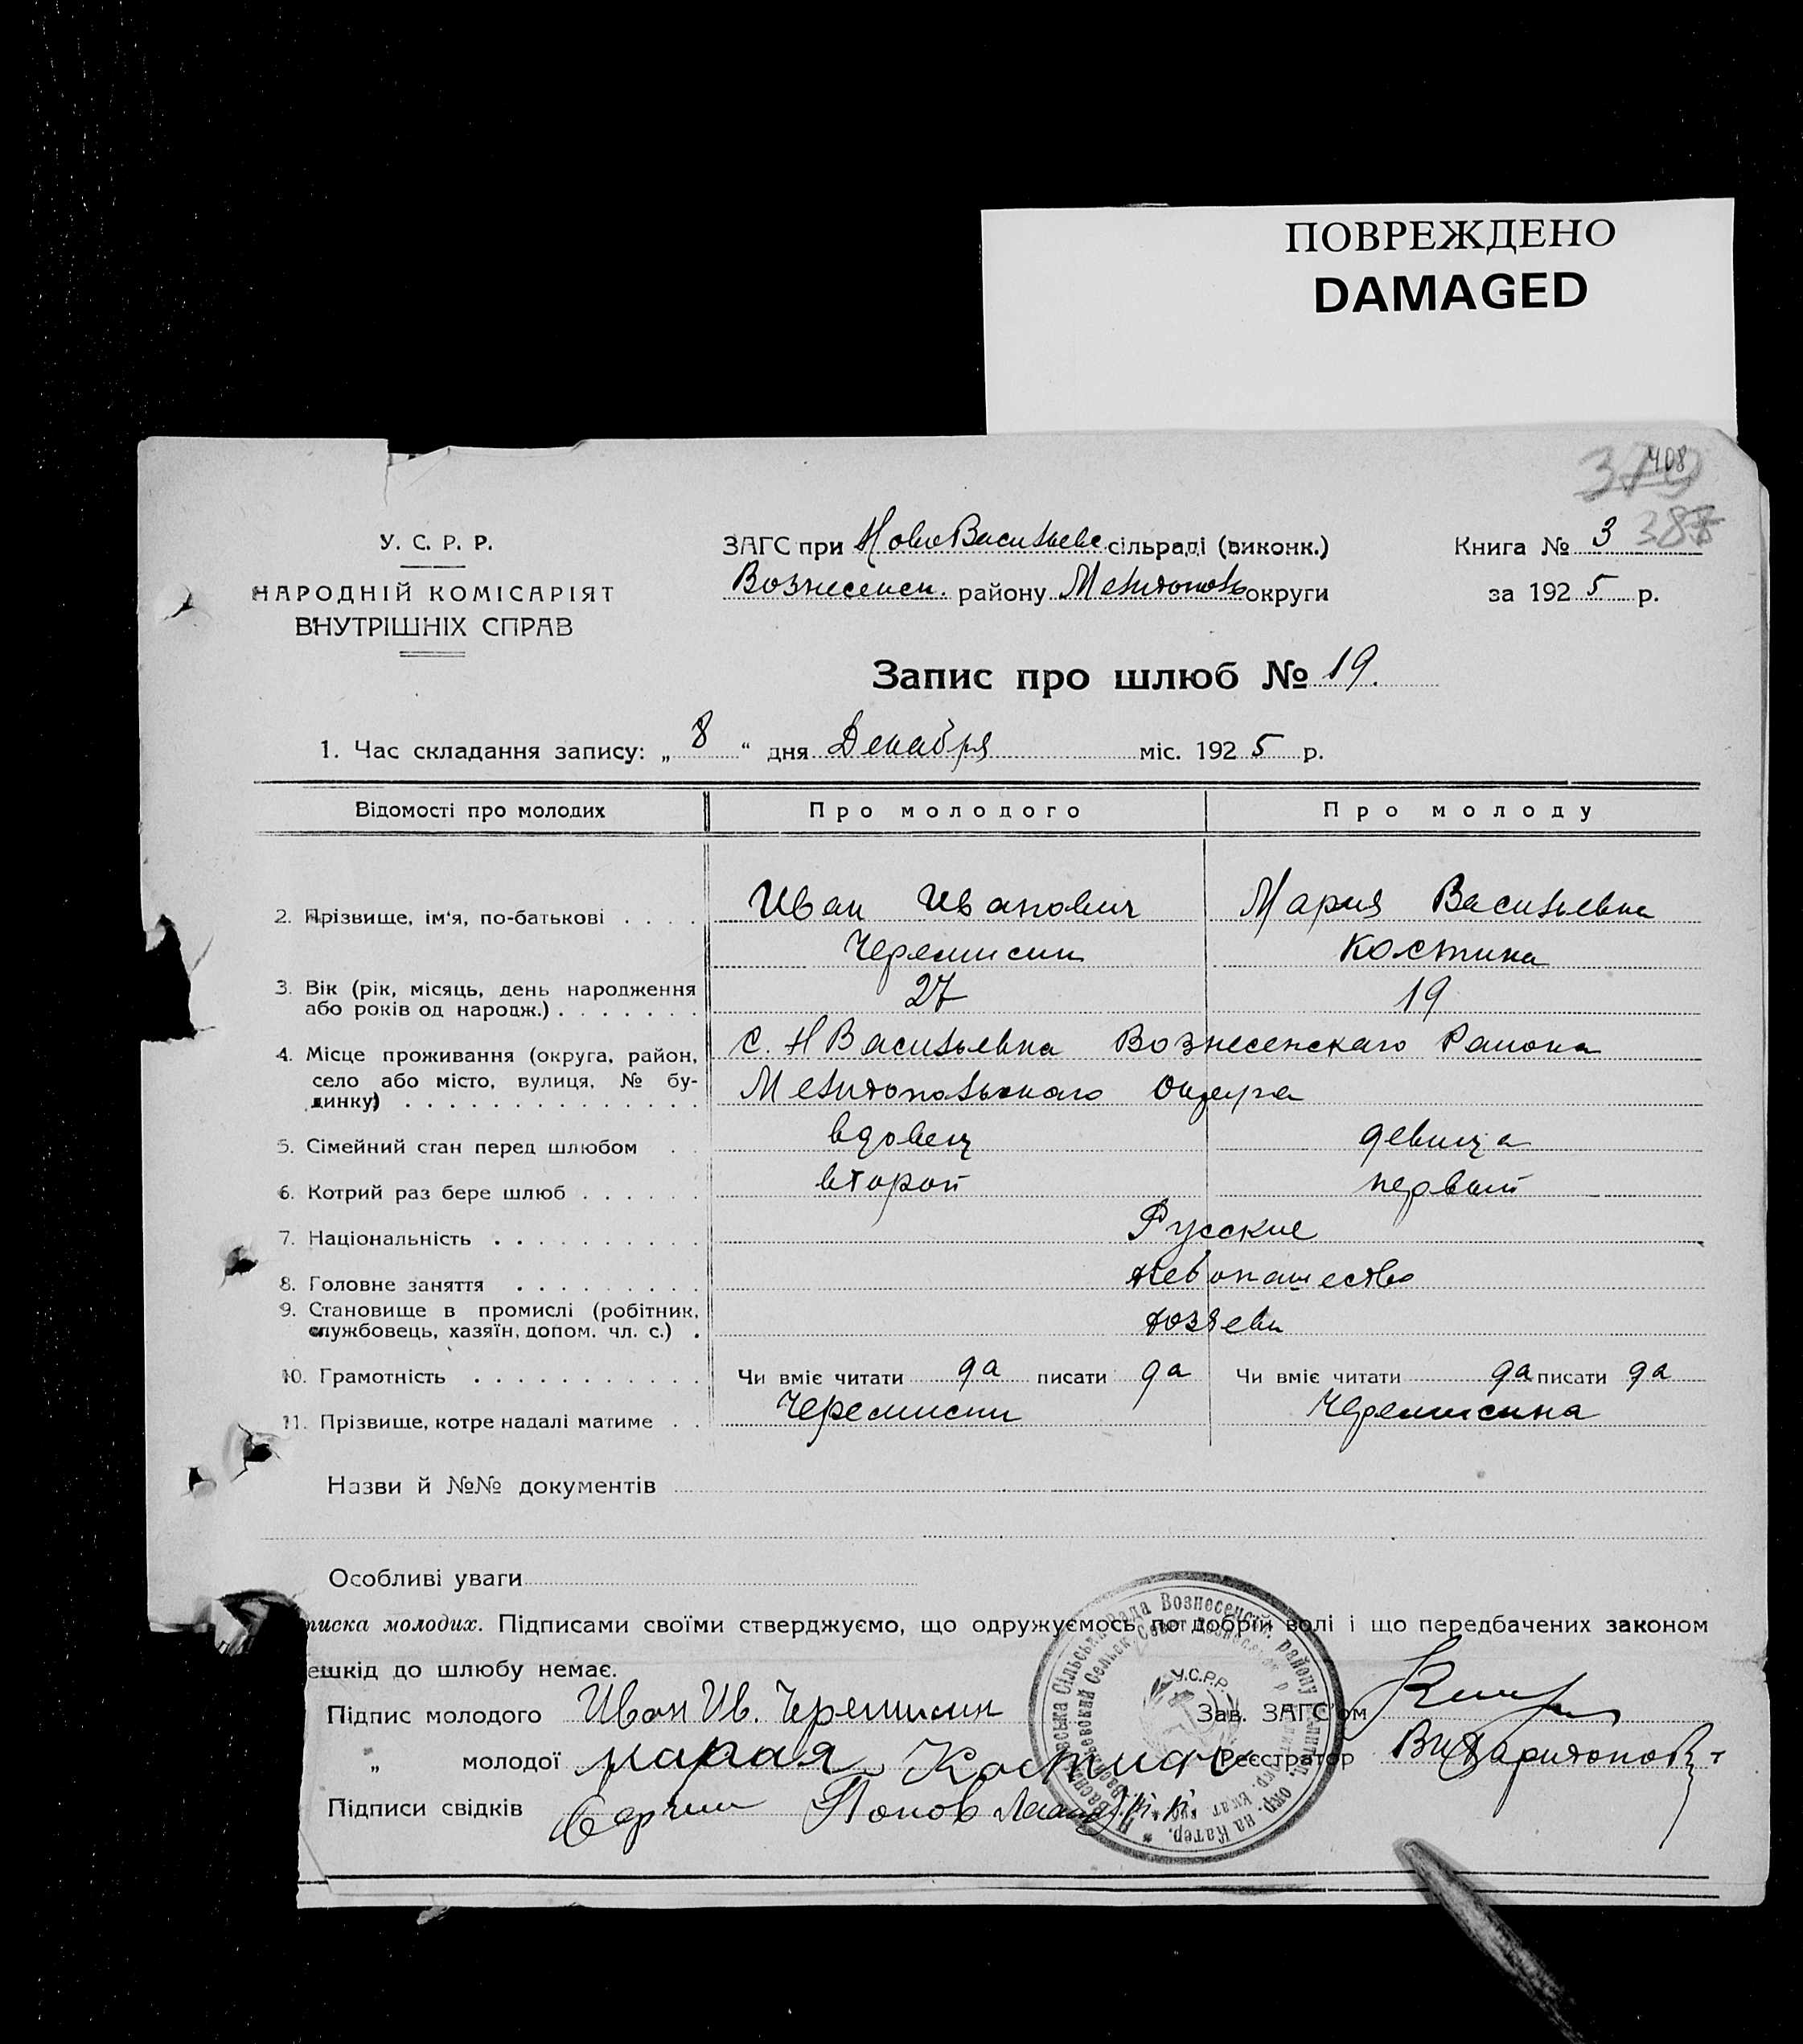 ПОВРЕЖДЕНО
DAMAGED
408
379
387
У. С. Р. Р.
НАРОДНІЙ КОМІСАРІЯТ
ВНУТРІШНІХ СПРАВ
ЗАГС при НовоВасильевс сільраді (виконк.)
Вознесенск. району Мелитополь округи
Книга № 3
за 1925 р.
Запис про шлюб № 19.
1. Час складання запису: „8“ дня Декабря міс. 1925 р.
Відомості про молодих Про молодого Про молоду
2. Прізвище, ім'я, по-батькові . . . . Иван Иванович Мария Васильевна
Черемисин Костина
3. Вік (рік, місяць, день народження
або років од народж.) . . . . . . . 27 19
4. Місце проживання (округа, район, с. НВасильевка Вознесенскаго Района
село або місто, вулиця, № бу-
динку) . . . . . . . . . . . . . . Мелитопольскаго Округа
5. Сімейний стан перед шлюбом . . вдовец девица
6. Котрий раз бере шлюб . . . . . . второй первый
7. Національність . . . . . . . . . . Русские
8. Головне заняття . . . . . . . . . хлебопашество
9. Становище в промислі (робітник,
службовець, хазяїн, допом. чл. с.) . хозяева
10. Грамотність . . . . . . . . . . . Чи вміє читати да писати да Чи вміє читати да писати да
11. Прізвище, котре надалі матиме . . Черемисин Черемисина
Назви й №№ документів
Особливі уваги
писка молодих. Підписами своїми стверджуємо, що одружуємось по добрій волі і що передбачених законом
ешкід до шлюбу немає.
Підпис молодого Иван Ив. Черемисин Зав. ЗАГС'ом
„ молодої Марая Костина Реєстратор ВИХаритонов
Підписи свідків Попов
У.С.Р.Р.
Сільська Рада Вознесенськ. району